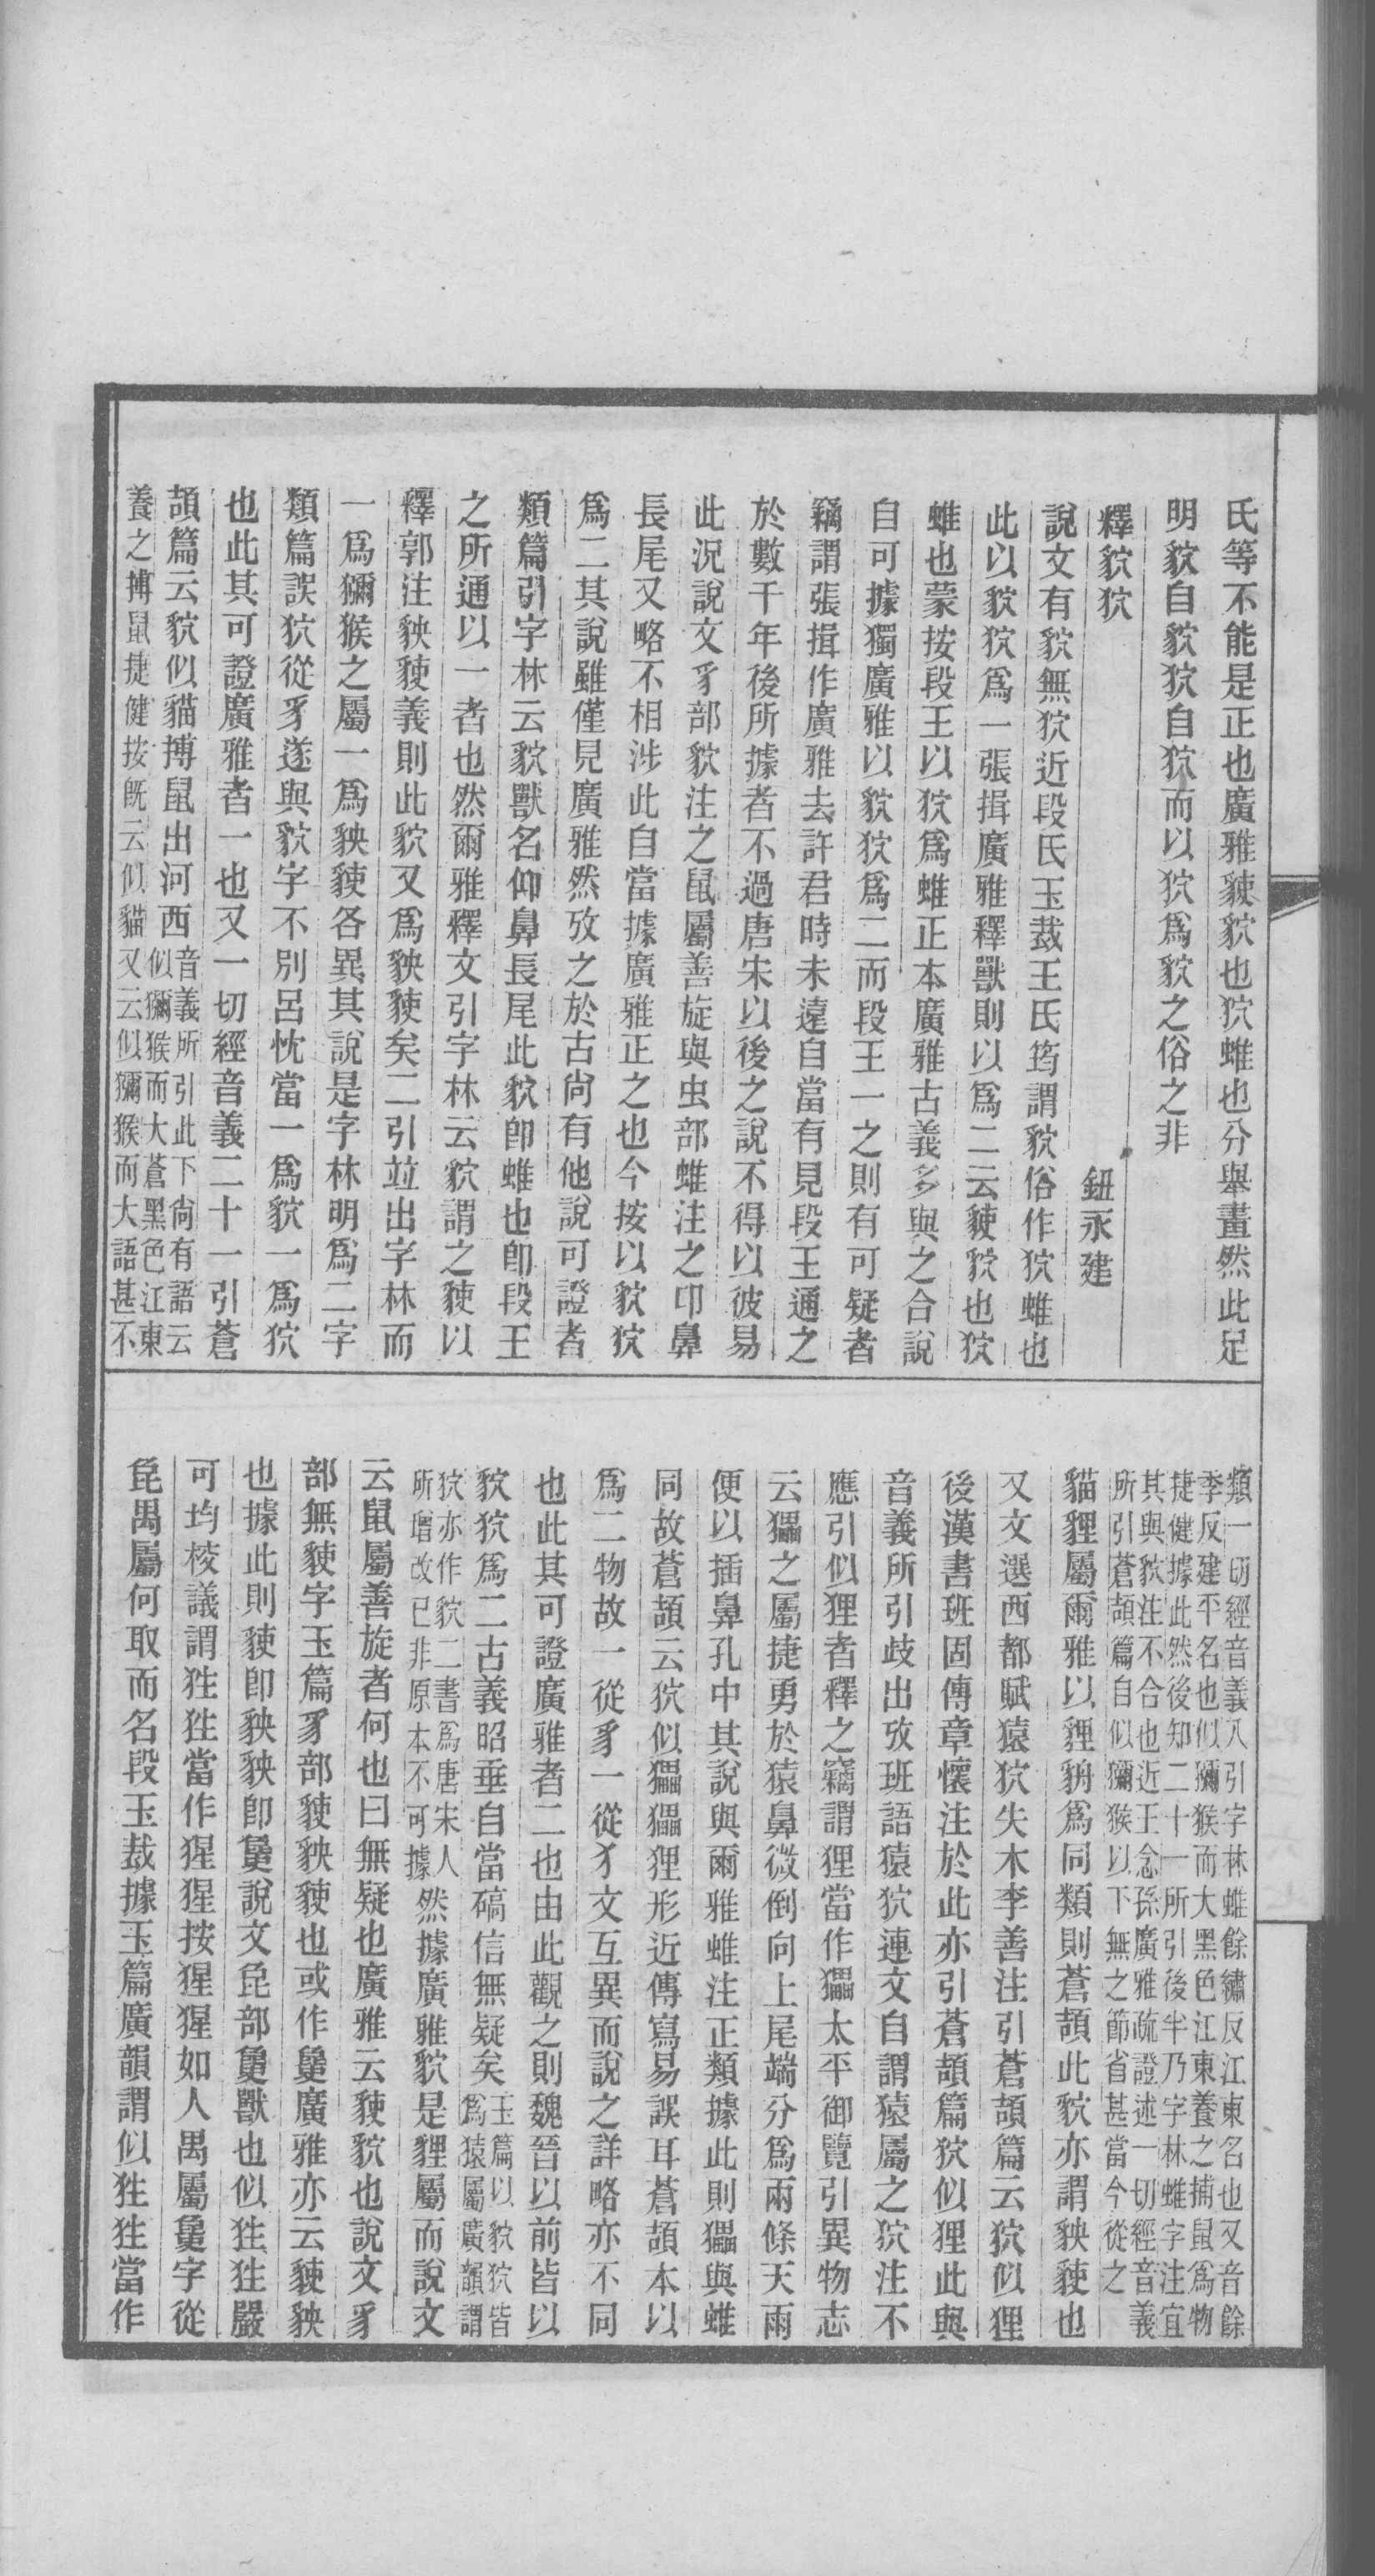 氏等不能是正也廣雅貗貁也狖蜼也分舉畫然此足
明貁自貁狖自狖而以狖爲貁之俗之非
釋貁狖
鈕永建
說文有貁無狖近段氏玉裁王氏筠謂貁俗作狖蜼也
此以貁狖爲一張揖廣雅釋獸則以爲二云貗貁也狖
蜼也蒙按段王以狖爲蜼正本廣雅古義多與之合說
自可據獨廣雅以貁狖爲二而段王一之則有可疑者
竊謂張揖作廣雅去許君時未遠自當有見段王通之
於數千年後所據者不過唐宋以後之說不得以彼易
此況說文豸部貁注之鼠屬善旋與虫部蜼注之卬鼻
長尾又略不相涉此自當據廣雅正之也今按以貁狖
爲二其說雖僅見廣雅然攷之於古尙有他說可證者
類篇引字林云貁獸名仰鼻長尾此貁卽蜼也卽段王
之所通以一者也然爾雅釋文引字林云貁謂之貗以
釋郭注䝘貗義則此貁又爲䝘貗矣二引並出字林而
一爲獼猴之屬一爲䝘貗各異其說是字林明爲二字
類篇誤狖從豸遂與貁字不別呂忱當一爲貁一爲狖
也此其可證廣雅者一也又一切經音義二十一引蒼
頡篇云貁似貓搏鼠出河西音義所引此下尙有語云
似獼猴而大蒼黑色江東
養之搏鼠捷健按旣云似貓又云似獼猴而大語甚不
類一切經音義八引字林蜼餘繡反江東名也又音餘
季反建平名也似獼猴而大黑色江東養之捕鼠爲物
捷健據此然後知二十一所引後半乃字林蜼字注宜
其與貁注不合也近王念孫廣雅疏證述一切經音義
所引蒼頡篇自似獼猴以下無之節省甚當今從之
貓貍屬爾雅以貍貈爲同類則蒼頡此貁亦謂䝘貗也
又文選西都賦猿狖失木李善注引蒼頡篇云狖似狸
後漢書班固傳章懷注於此亦引蒼頡篇狖似狸此與
音義所引歧出攷班語猿狖連文自謂猿屬之狖注不
應引似狸者釋之竊謂狸當作玃太平御覽引異物志
云玃之屬捷勇於猿鼻微倒向上尾端分爲兩條天雨
便以插鼻孔中其說與爾雅蜼注正類據此則玃與蜼
同故蒼頡云狖似玃玃狸形近傳寫易誤耳蒼頡本以
爲二物故一從豸一從犭文互異而說之詳略亦不同
也此其可證廣雅者二也由此觀之則魏晉以前皆以
貁狖爲二古義昭垂自當碻信無疑矣玉篇以貁狖皆
爲猿屬廣韻謂
狖亦作貁二書爲唐宋人
所增改已非原本不可據然據廣雅貁是貍屬而說文
云鼠屬善旋者何也曰無疑也廣雅云貗貁也說文豸
部無貗字玉篇豸部貗䝘貗也或作㲋廣雅亦云貗䝘
也據此則貗卽䝘䝘卽㲋說文㲋部㲋獸也似狌狌嚴
可均校議謂狌狌當作猩猩按猩猩如人禺屬㲋字從
㲋禺屬何取而名段玉裁據玉篇廣韻謂似狌狌當作